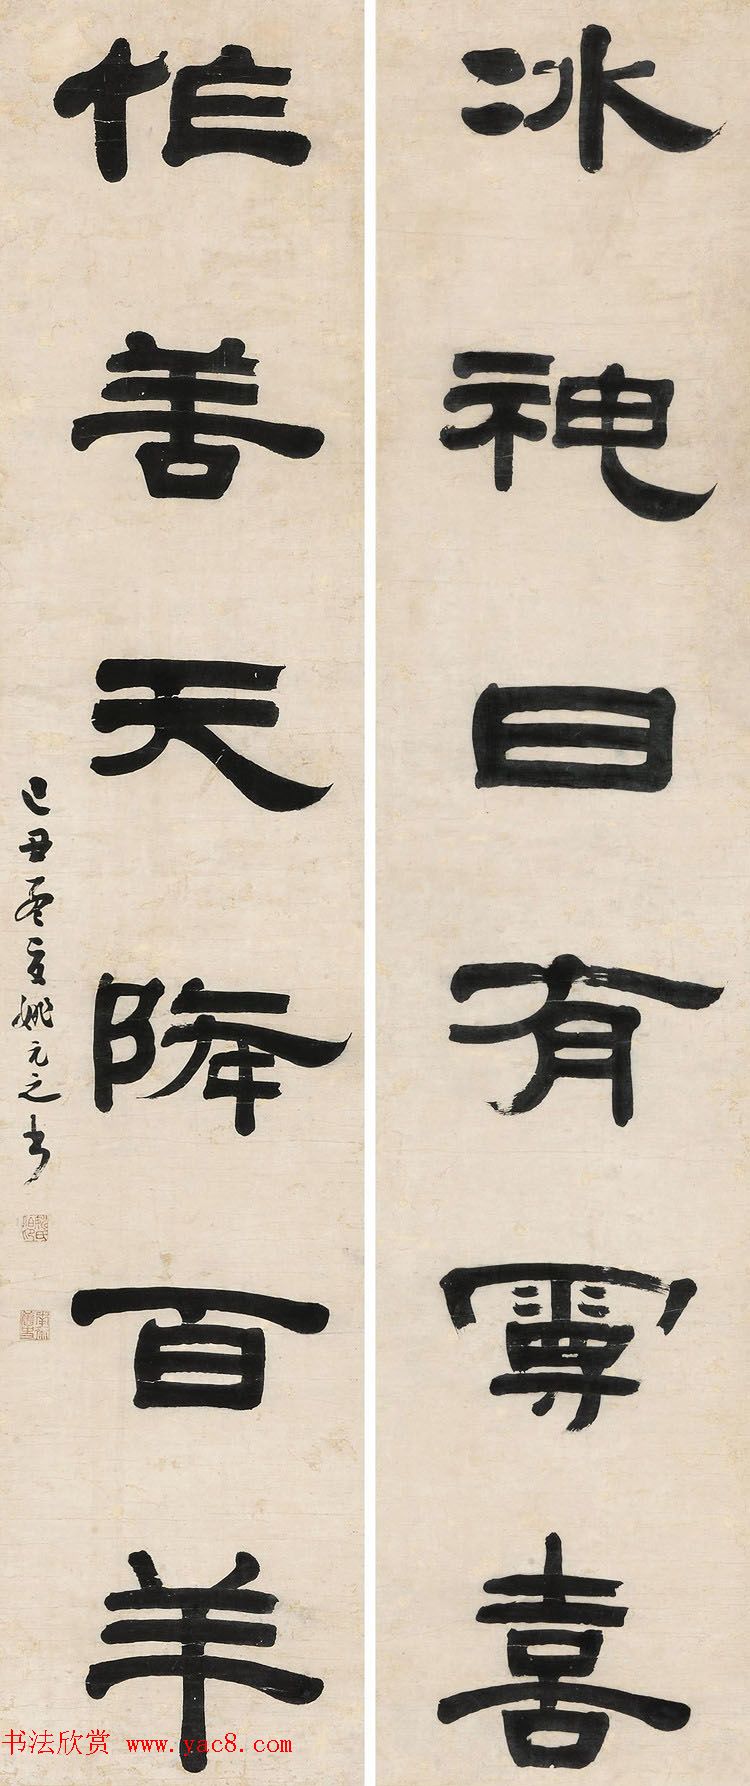 冰神日有喜
作善天降百羊
己丑姚元之書
书法欣赏 www.yac8.com